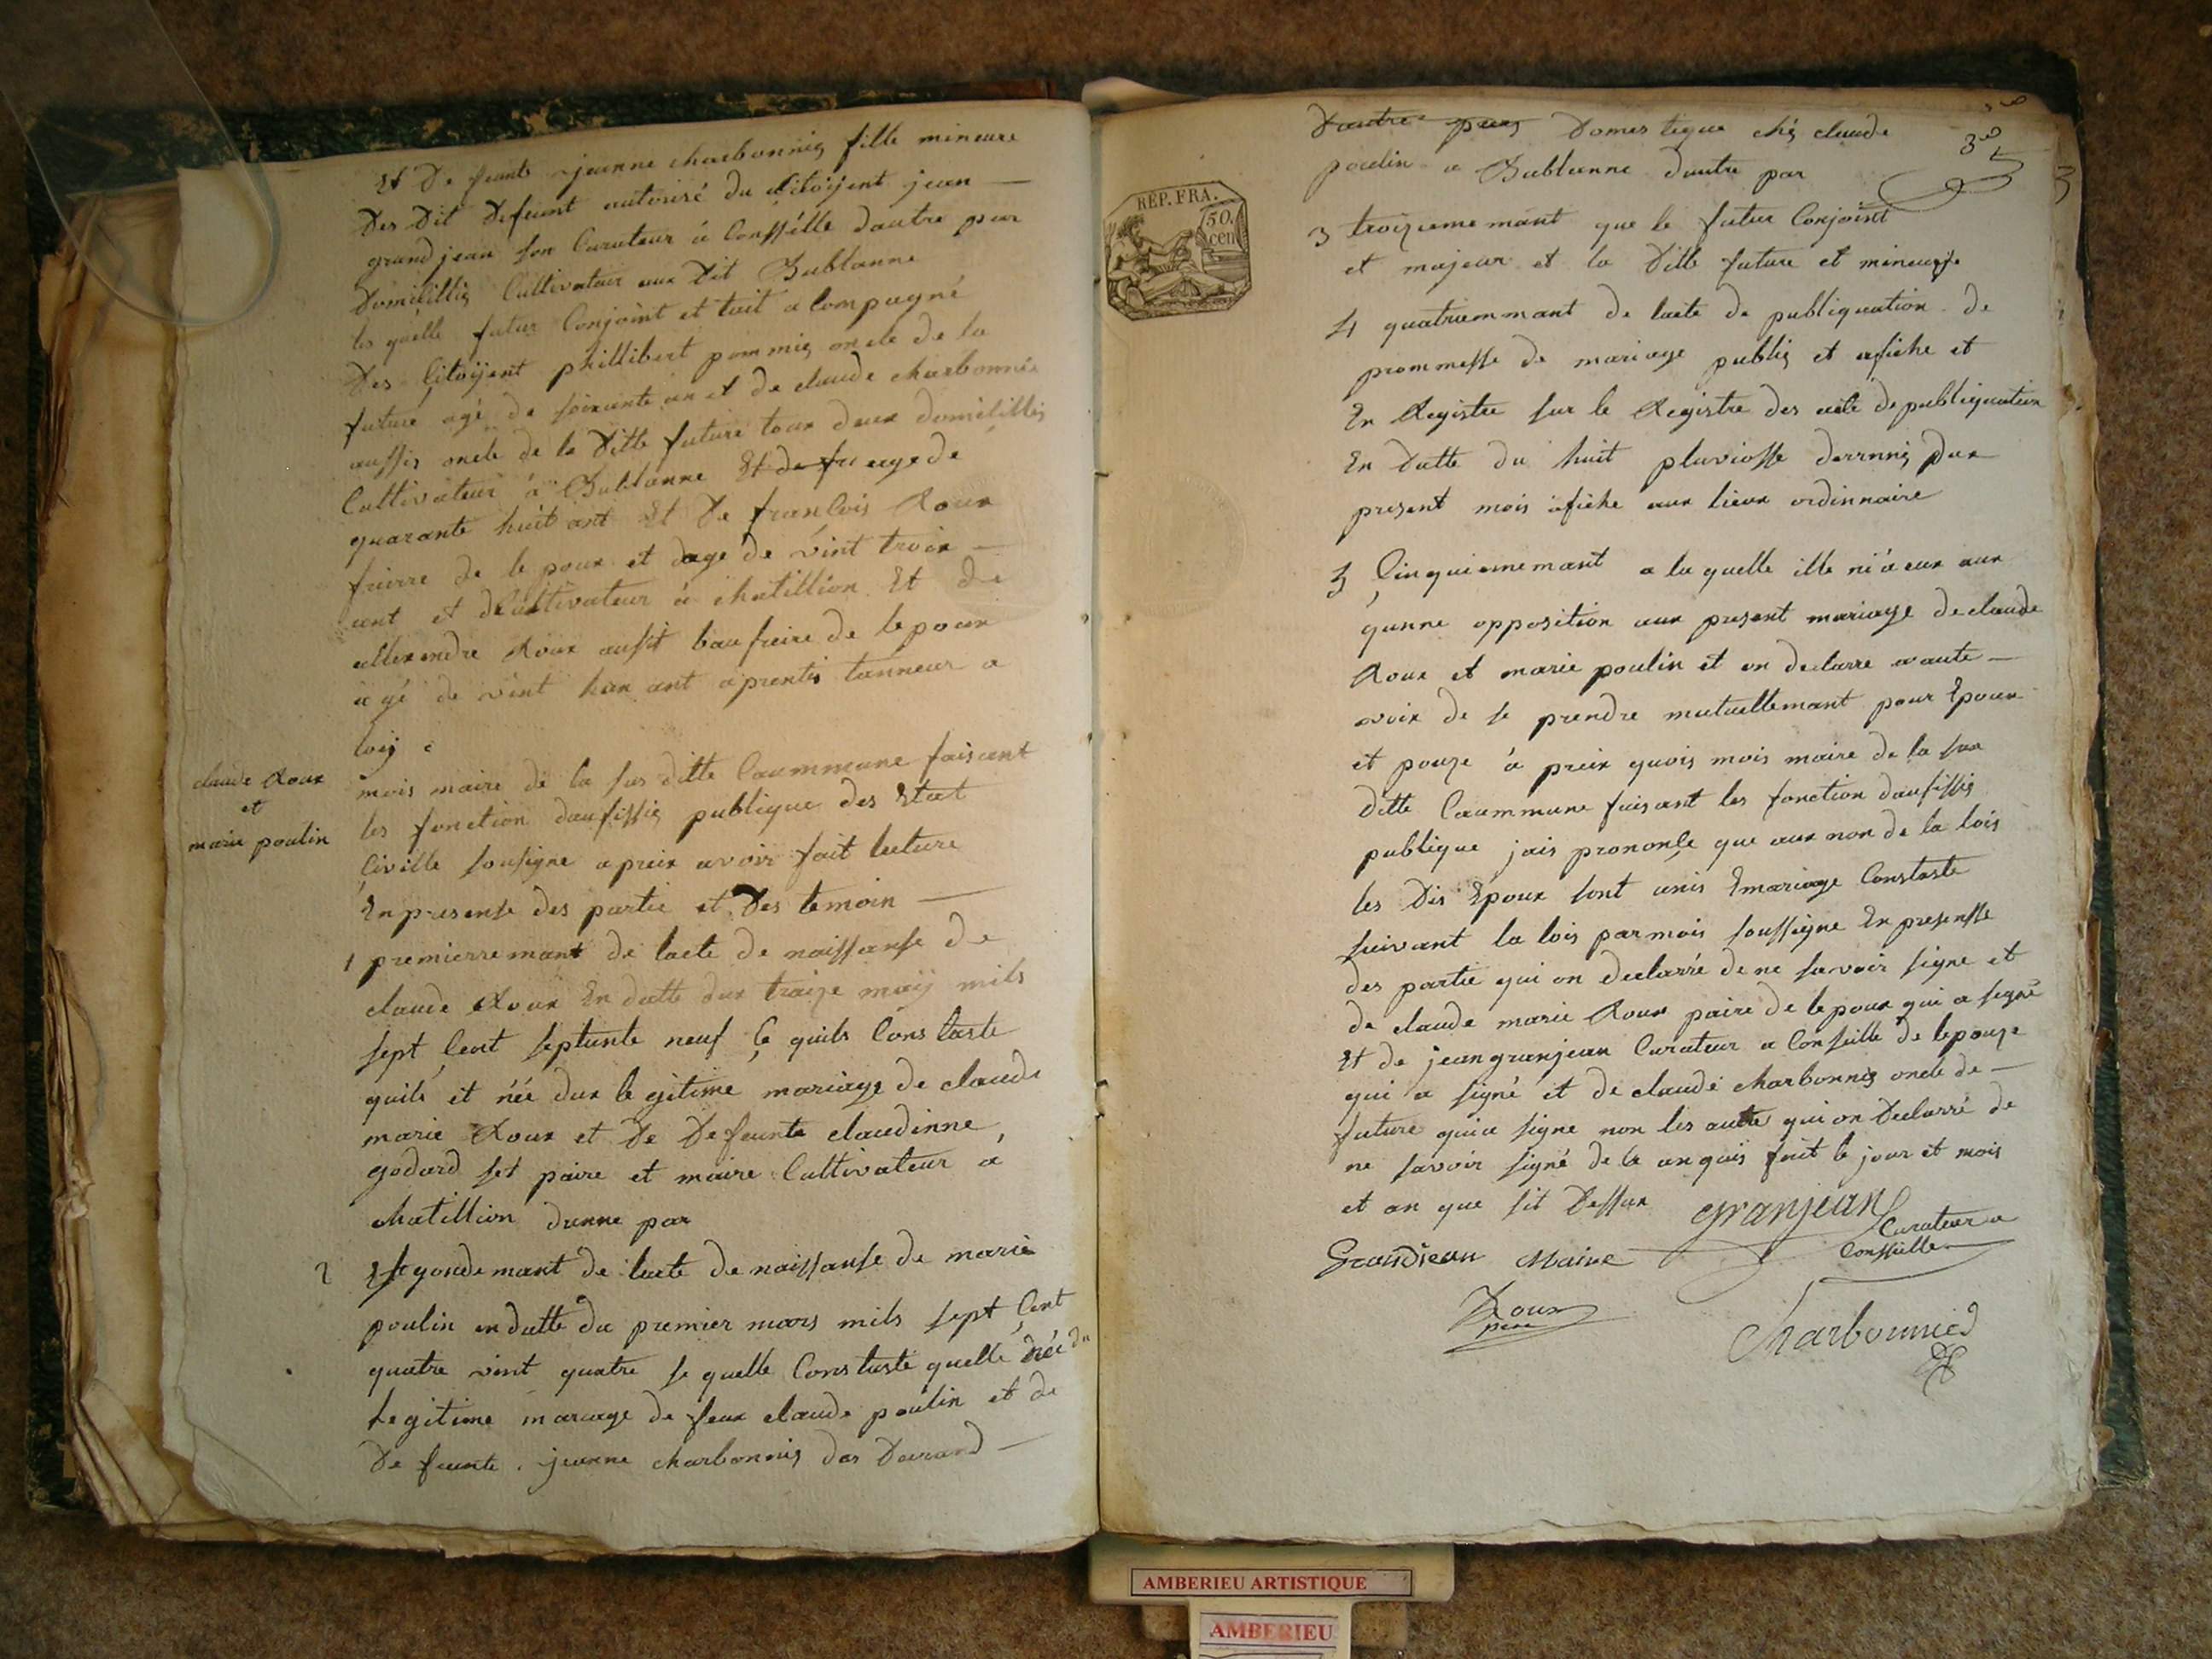 Et De feunte jeanne charbonnié fille mineure
Des Dit Defeunt autorisé du Citoÿent jean
grandjean son Curateur à Conssélle dautre par
Domicillié Cultivateur aux Dit Bublanne
les quelle futur Conjoint et tait a Compagné
Des Citoÿent phillibert pommié oncle de la
future agé de soixante an et de claude charbonnié
aussis oncle de la Ditte future tous deux domicilliés
Cultivateur à Bublanne Et de fr age de
quarante huit ant Et De franCois Roux
frairre de lepoux et dage de vint troix
ant et de Cultivateur à chatillion Et de
allexendre Roux aussit baufreire de lepoux
agé de vint hun ant aprentis tanneur a
loij
claude Roux
et
marie poulin
mois maire de la sus ditte Caummune faisant
les fonction daufissié publique des Etat
Civille sousigne apreix avoir fait lecture
En presense des partie et Des temoin
1 premierremant de lacte de naissanse de
claude Roux En datte dux traize maÿ mils
sept Cent septante neuf Ce quils Constaste
quils et née dux legitime mariage de claude
marie Roux et De Defeunte claudinne
godard set paire et maire Cultivateur a
chatillion dunne par
2 Segondemant de lacte de naissanse de marie
poulin en datte du premier mars mils sept Cent
quatre vint quatre se quelle Constaste quelle née du
Legitime mariage de feux claude poulin et de
De feunte jeanne charbonnié des Durand
REP. FRA.
50.
cen
Dautre par Domestique ché claude
poulin a Bublanne dautre par
3 troiziememant que le futur Conjoint
et majeur et la Ditte future et mineure
4 quatriemmant de lacte de publiquation de
prommesse de mariage publié et afiche et
En Registre sur le Registre des acte de publiquation
En Datte du huit pluviosse dernnié dux
present mois afiche aux lieux ordinnaire
5 Cinquiememant a la quelle ille ni a eux aux
qunne opposition aux present mariage de claude
Roux et marie poulin et on declarre a aute
voix de se prendre mutuellemant pour Epoux
et pouze à preix quois mois maire de la sux
ditte Caummune faisant les fonction daufissié
publique jais prononce que aux non de la lois
les Dis Epoux sont unis Emariage Constaste
suivant la lois par mois soussigne En presensse
des partie qui on declarré de ne savoir signe et
de claude marie Roux paire de lepoux qui a signé
Et de jean granjean Curateur a Conseille de lepouze
qui a signé et de claude charbonnié oncle de
future qui a signe non les autre qui on Declarré de
ne savoir signé de Ce anquis fait le jour et mois
et an que sit Dessux
Granjean
Curateur a
Conssielle
Grandjean Maire
Roux
pere
Charbonnied
AMBERIEU ARTISTIQUE
AMBERIEU